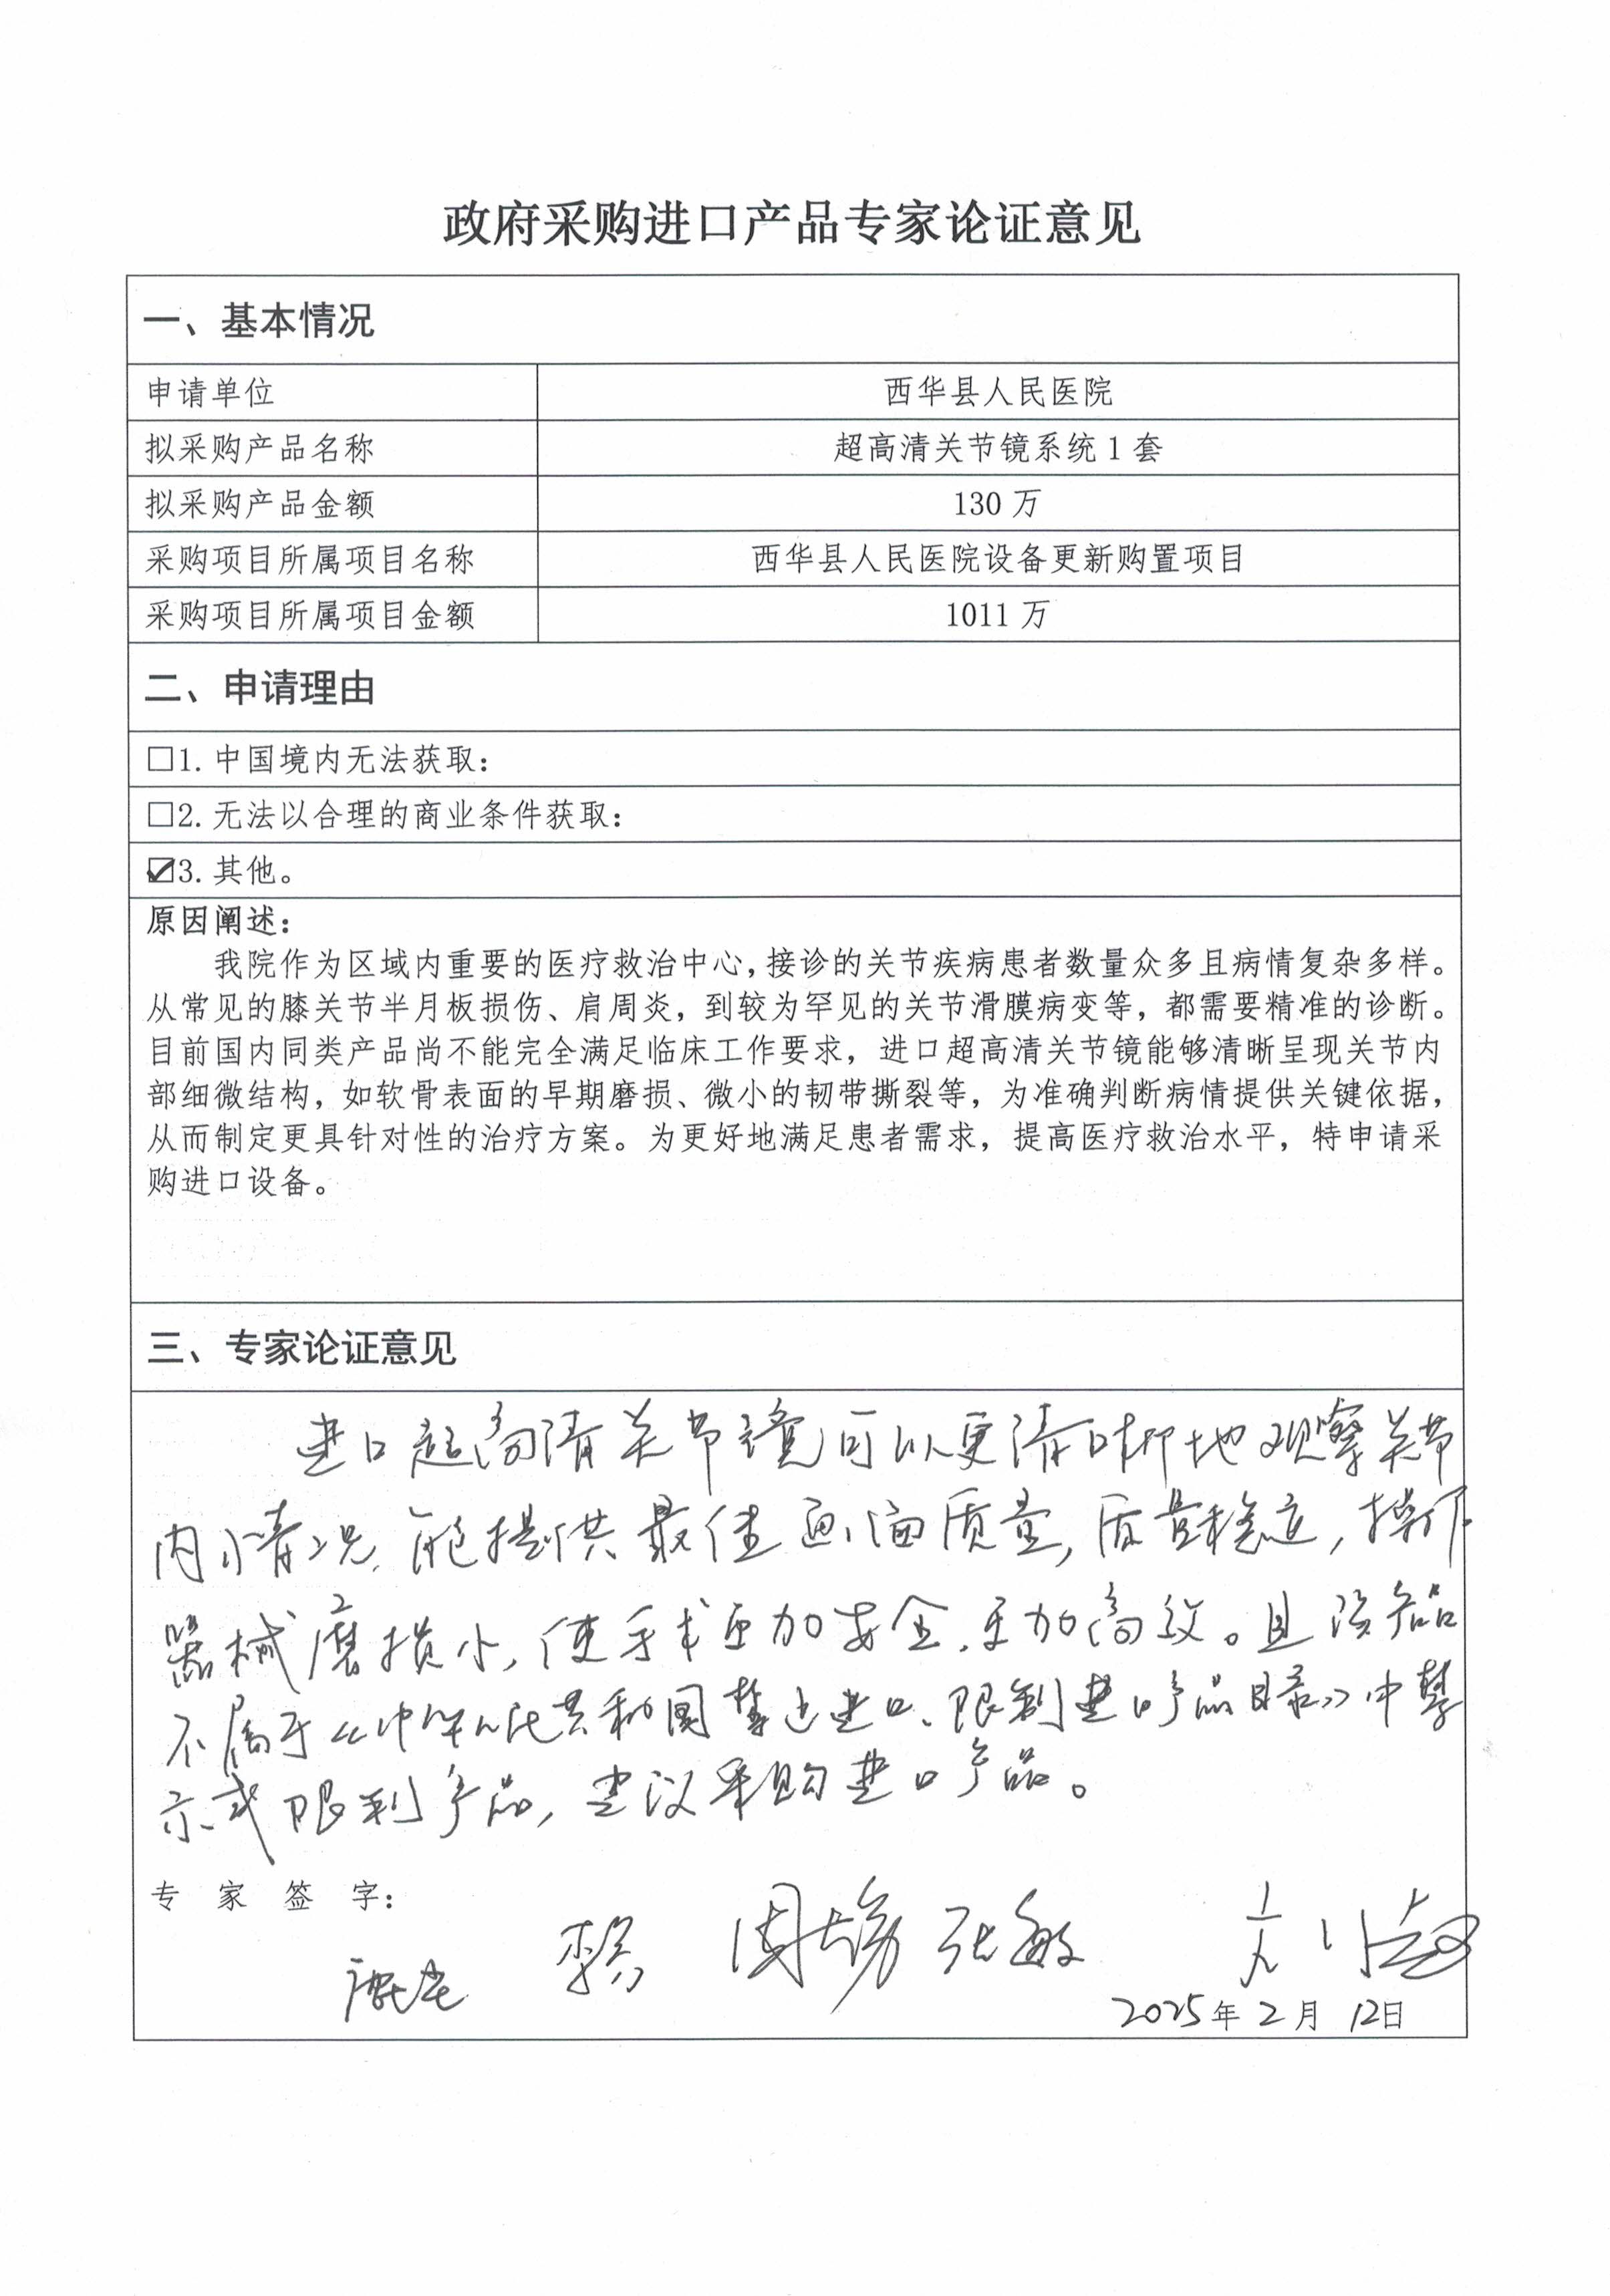 政府采购进口产品专家论证意见
一、基本情况
申请单位 西华县人民医院
拟采购产品名称 超高清关节镜系统1套
拟采购产品金额 130万
采购项目所属项目名称 西华县人民医院设备更新购置项目
采购项目所属项目金额 1011万
二、申请理由
□1.中国境内无法获取:
□2.无法以合理的商业条件获取:
☑3.其他。
原因阐述:
我院作为区域内重要的医疗救治中心,接诊的关节疾病患者数量众多且病情复杂多样。
从常见的膝关节半月板损伤、肩周炎，到较为罕见的关节滑膜病变等，都需要精准的诊断。
目前国内同类产品尚不能完全满足临床工作要求，进口超高清关节镜能够清晰呈现关节内
部细微结构，如软骨表面的早期磨损、微小的韧带撕裂等，为准确判断病情提供关键依据，
从而制定更具针对性的治疗方案。为更好地满足患者需求，提高医疗救治水平，特申请采
购进口设备。
三、专家论证意见
进口超高清关节镜可以更清晰地观察关节
内情况,能提供最佳画面质量,质量稳定,操作
器械磨损小,使手术更加安全、更加高效。且该产品
不属于《中华人民共和国禁止进口、限制进口产品目录》中禁
示或限制产品,建议采购进口产品。
专家签字:
张敏
2025年2月12日